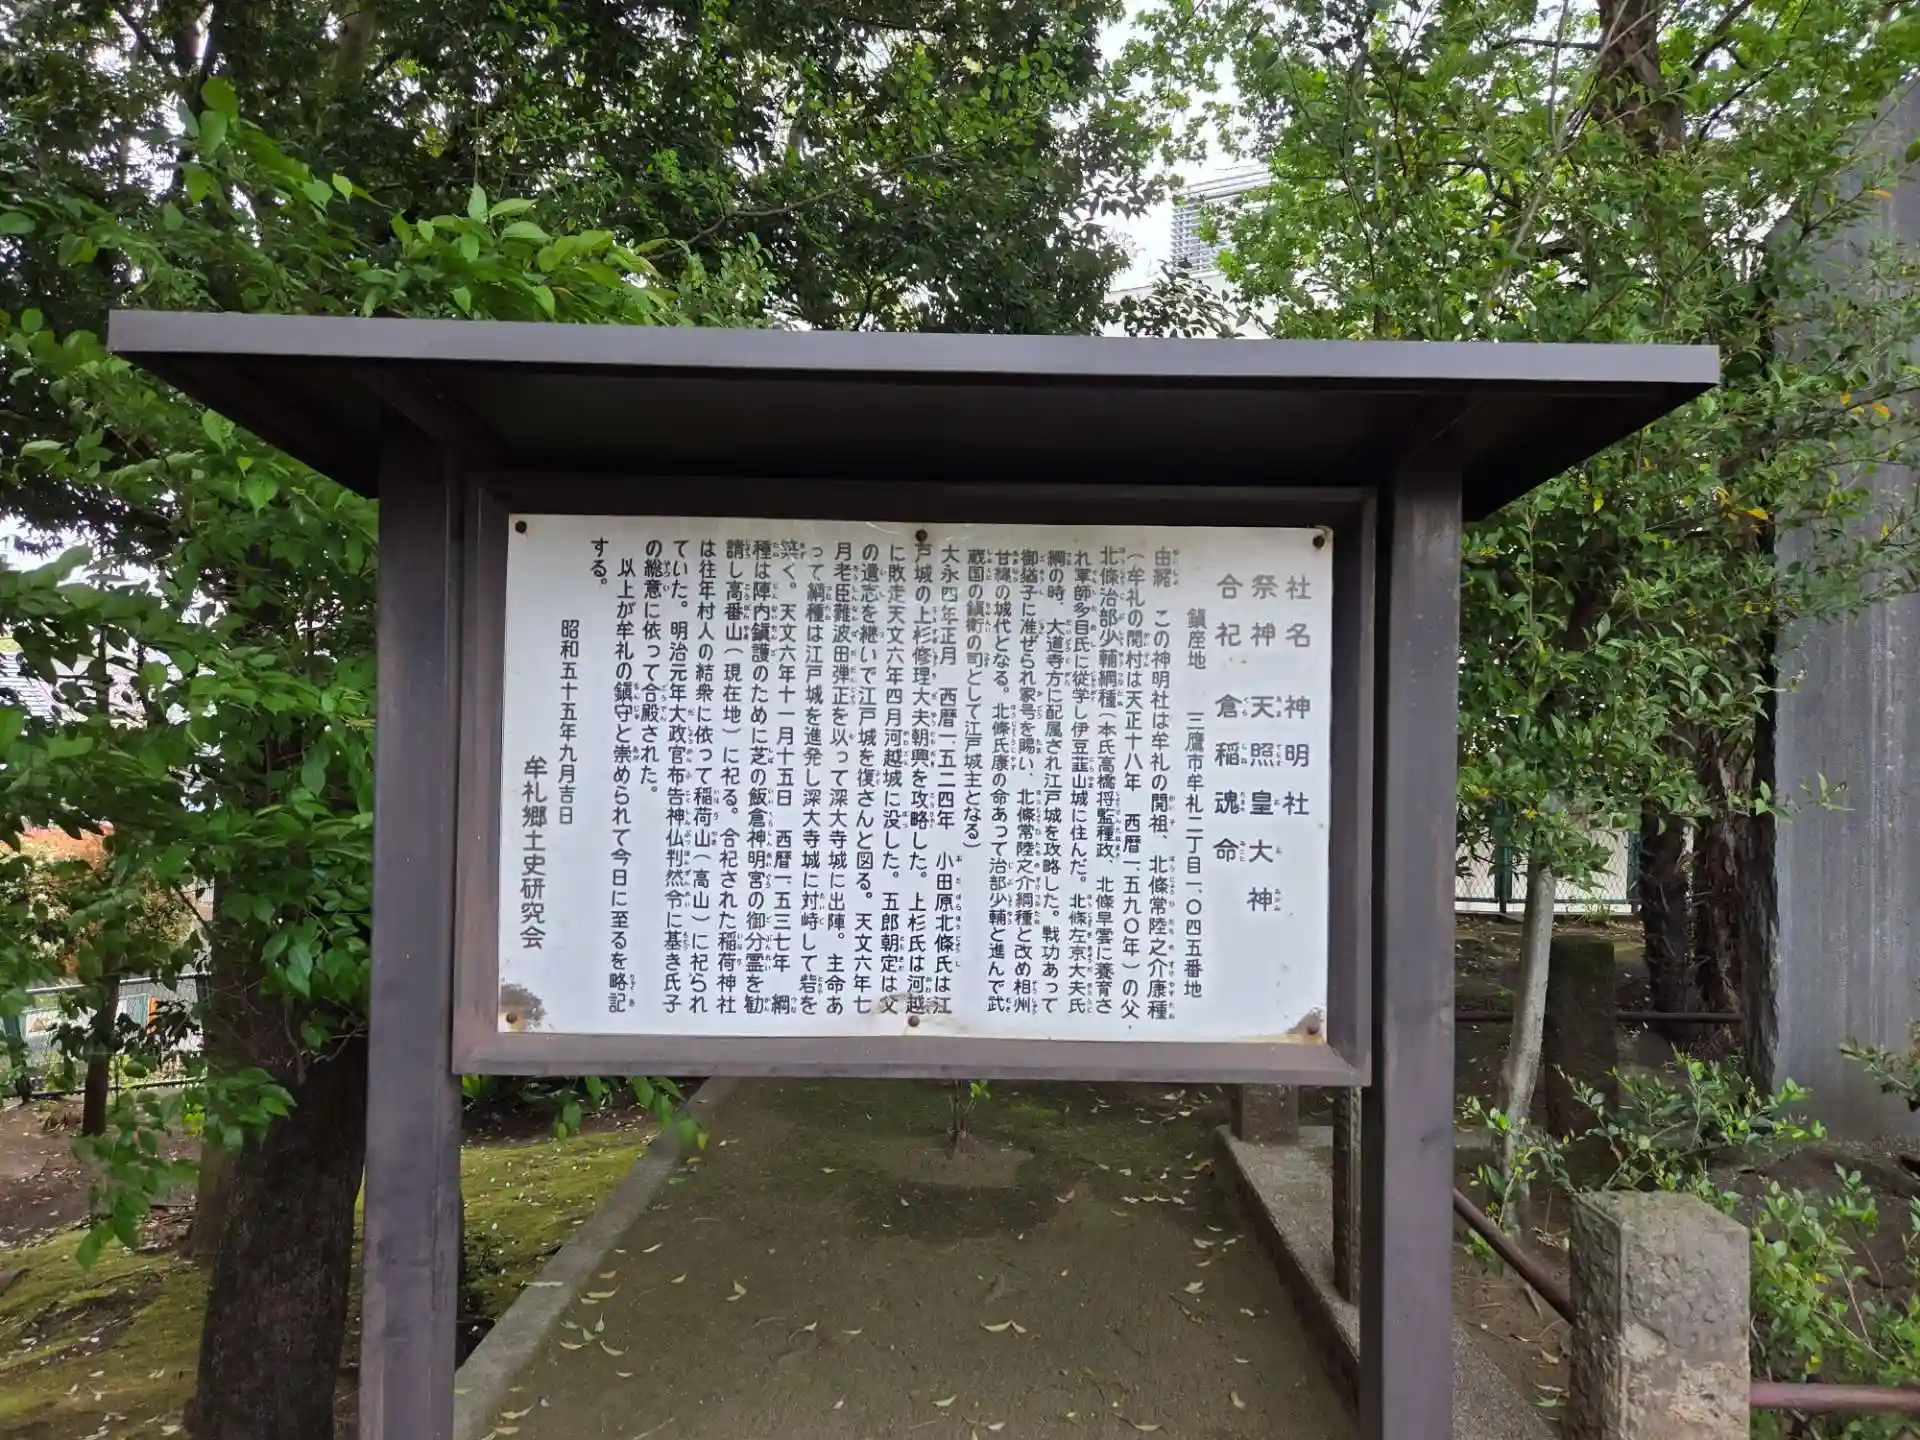 社名 神明社
祭神 天照皇大神
合祀 倉稲魂命
鎮座地 三鷹市牟礼二丁目一、〇四五番地
由緒 この神明社は牟礼の開祖、北條常陸之介康種
(牟礼の開村は天正十八年 西暦一、五九〇年)の父、
北條治部少輔綱種(本氏高橋将監種政、北條早雲に養育さ
れ軍師多目氏に従学し伊豆韮山城に住んだ。北條左京大夫氏
綱の時、大道寺方に配属され江戸城を攻略した。戦功あって
御猶子に准ぜられ家号を賜い、北條常陸之介綱種と改め相州
甘縄の城代となる。北條氏康の命あって治部少輔と進んで武
蔵国の鎮衛の司として江戸城主となる)
大永四年正月 西暦一、五二四年 小田原北條氏は江
戸城の上杉修理大夫朝興を攻略した。上杉氏は河越
に敗走天文六年四月河越城に没した。五郎朝定は父
の遺志を継いで江戸城を復さんと図る。天文六年七
月老臣難波田弾正を以って深大寺城に出陣。主命あ
って綱種は江戸城を進発し深大寺城に対峙して砦を
築く。天文六年十一月十五日 西暦一、五三七年 綱
種は陣内鎮護のために芝の飯倉神明宮の御分霊を勧
請し高番山(現在地)に祀る。合祀された稲荷神社
は往年村人の結衆に依って稲荷山(高山)に祀られ
ていた。明治元年大政官布告神仏判然令に基き氏子
の総意に依って合殿された。
以上が牟礼の鎮守と崇められて今日に至るを略記
する。
昭和五十五年九月吉日
牟礼郷土史研究会